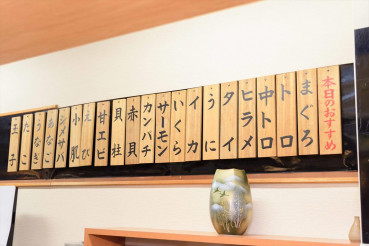 本日のおすすめ
まぐろ
トロ
中トロ
ヒラメ
タイ
うに
イカ
いくら
サーモン
カンパチ
赤貝
貝柱
甘エビ
えび
小肌
シメサバ
あなご
うなぎ
たこ
玉子